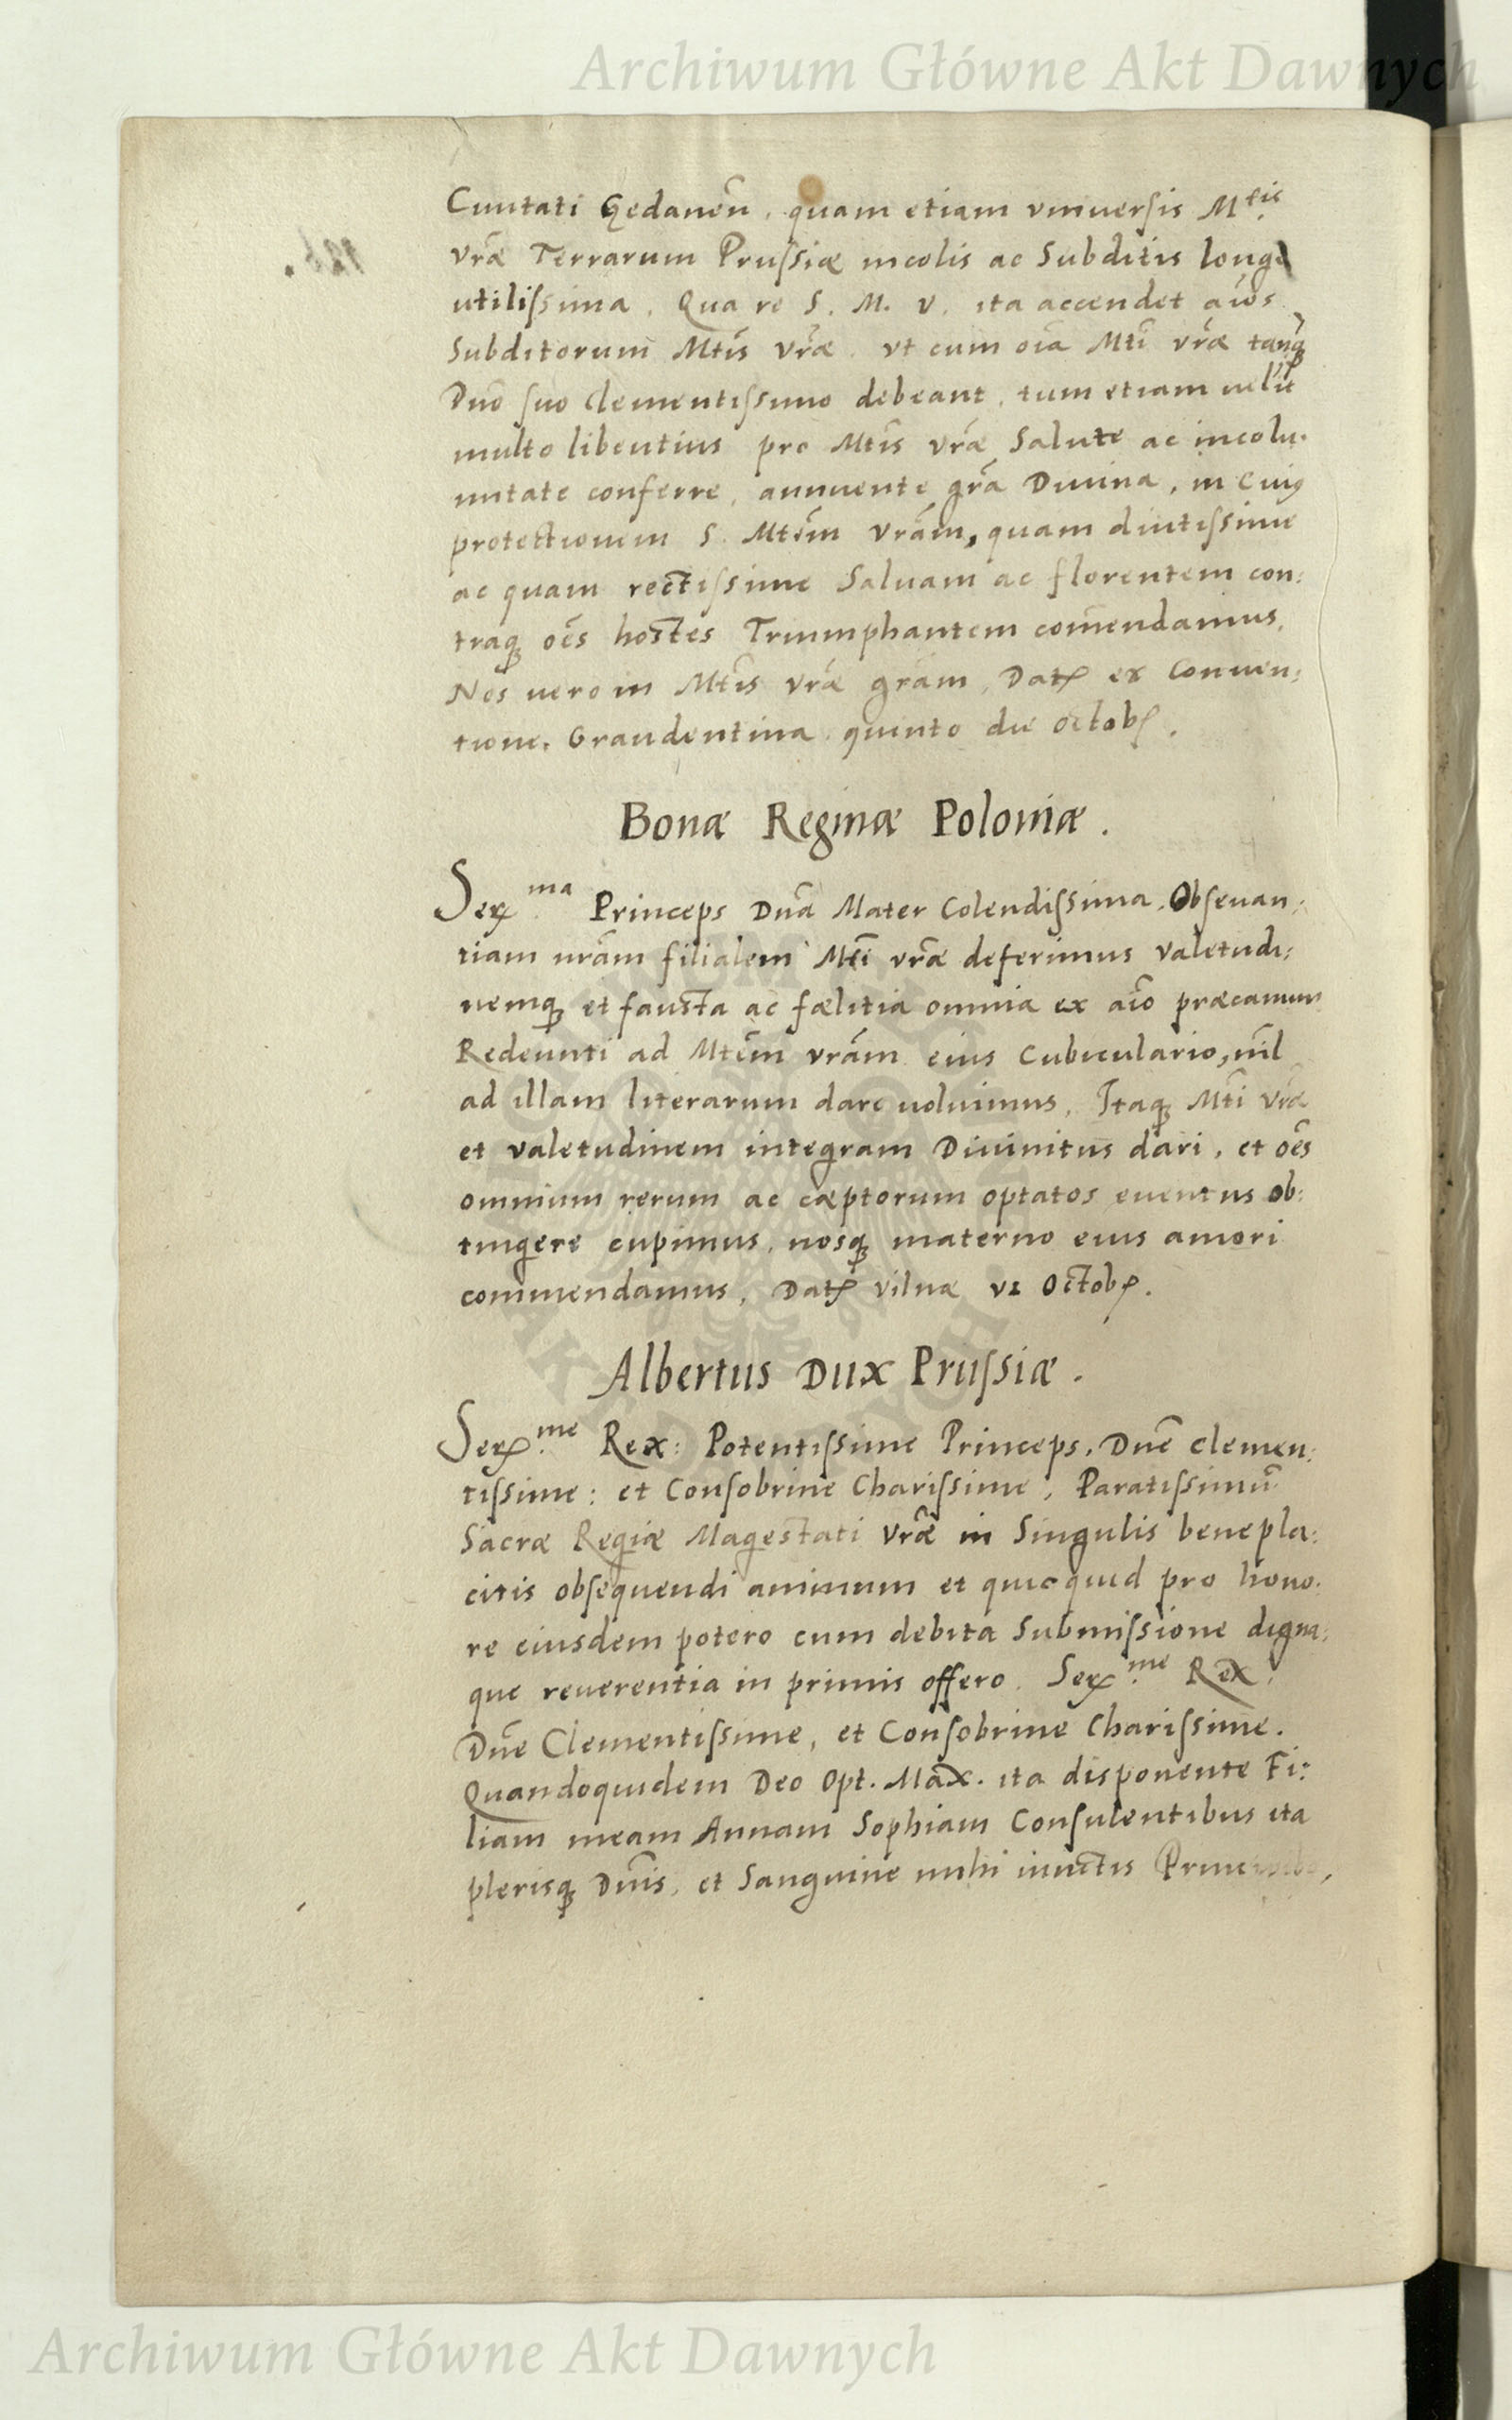 Archiwum Główne Akt Dawnych
Ciuitati Gedaneñ, quam etiam vniuersis Mtis
vrãe Terrarum Prussiæ incolis ac Subditis longe
utilissima. Qua re S. M. V. ita accendet aĩos
Subditorum Mtĩs vrãe. vt cum oĩa Mtĩ vrãe tanq̃
Dnõ suo clementissimo debeant, tum etiam uelĩt
multo libentius pro Mtĩs vrãe Salute ac incolu-
mitate conferre, annuente grã Diuina, in Cuiꝰ
protectionem S. Mtẽm vrãm, quam diutissime
ac quam rectissime Saluam ac florentem con:
traqꝫ oẽs hostes Triumphantem com̃endamus,
Nos uero in Mtĩs vrãe grãm, Datꝭ ex Conuen:
tione. Graudentina quinto die octobꝭ.
Bonæ Reginæ Poloniæ.
Serꝭ.ma Princeps Dnã Mater Colendissima. Obseuan:
tiam nrãm filialem Mtĩ vrãe deferimus valetudi:
nemqꝫ et fausta ac fælitia omnia ex aĩo præcamur
Redeunti ad Mtẽm vrãm eius Cubiculario, nĩl
ad illam literarum dare uoluimus, Itaqꝫ Mtĩ vrãe
et valetudinem integram Diuinitus dari, et oẽs
omnium rerum ac cæptorum optatos euentus ob:
tingere cupimus, nosqꝫ materno eius amori
commendamus, Datꝭ Vilnæ VI Octobꝭ.
Albertus Dux Prussiæ.
Serꝭ.me Rex: Potentissime Princeps, Dnẽ clemen:
tissime: et Consobrine Charissime, Paratissimũ
Sacræ Regiæ Magestati vrãe in Singulis benepla:
citis obsequendi animum et quicquid pro hono:
re eiusdem potero cum debita Submissione digna:
que reuerentia in primis offero. Serꝭ.me Rex,
Dnẽ Clementissime, et Consobrine Charissime.
Quandoquidem Deo Opt. Max. ita disponente Fi:
liam meam Annam Sophiam Consulentibus ita
plerisqꝫ Dnĩs, et Sanguine mihi iunctis
Archiwum Główne Akt Dawnych